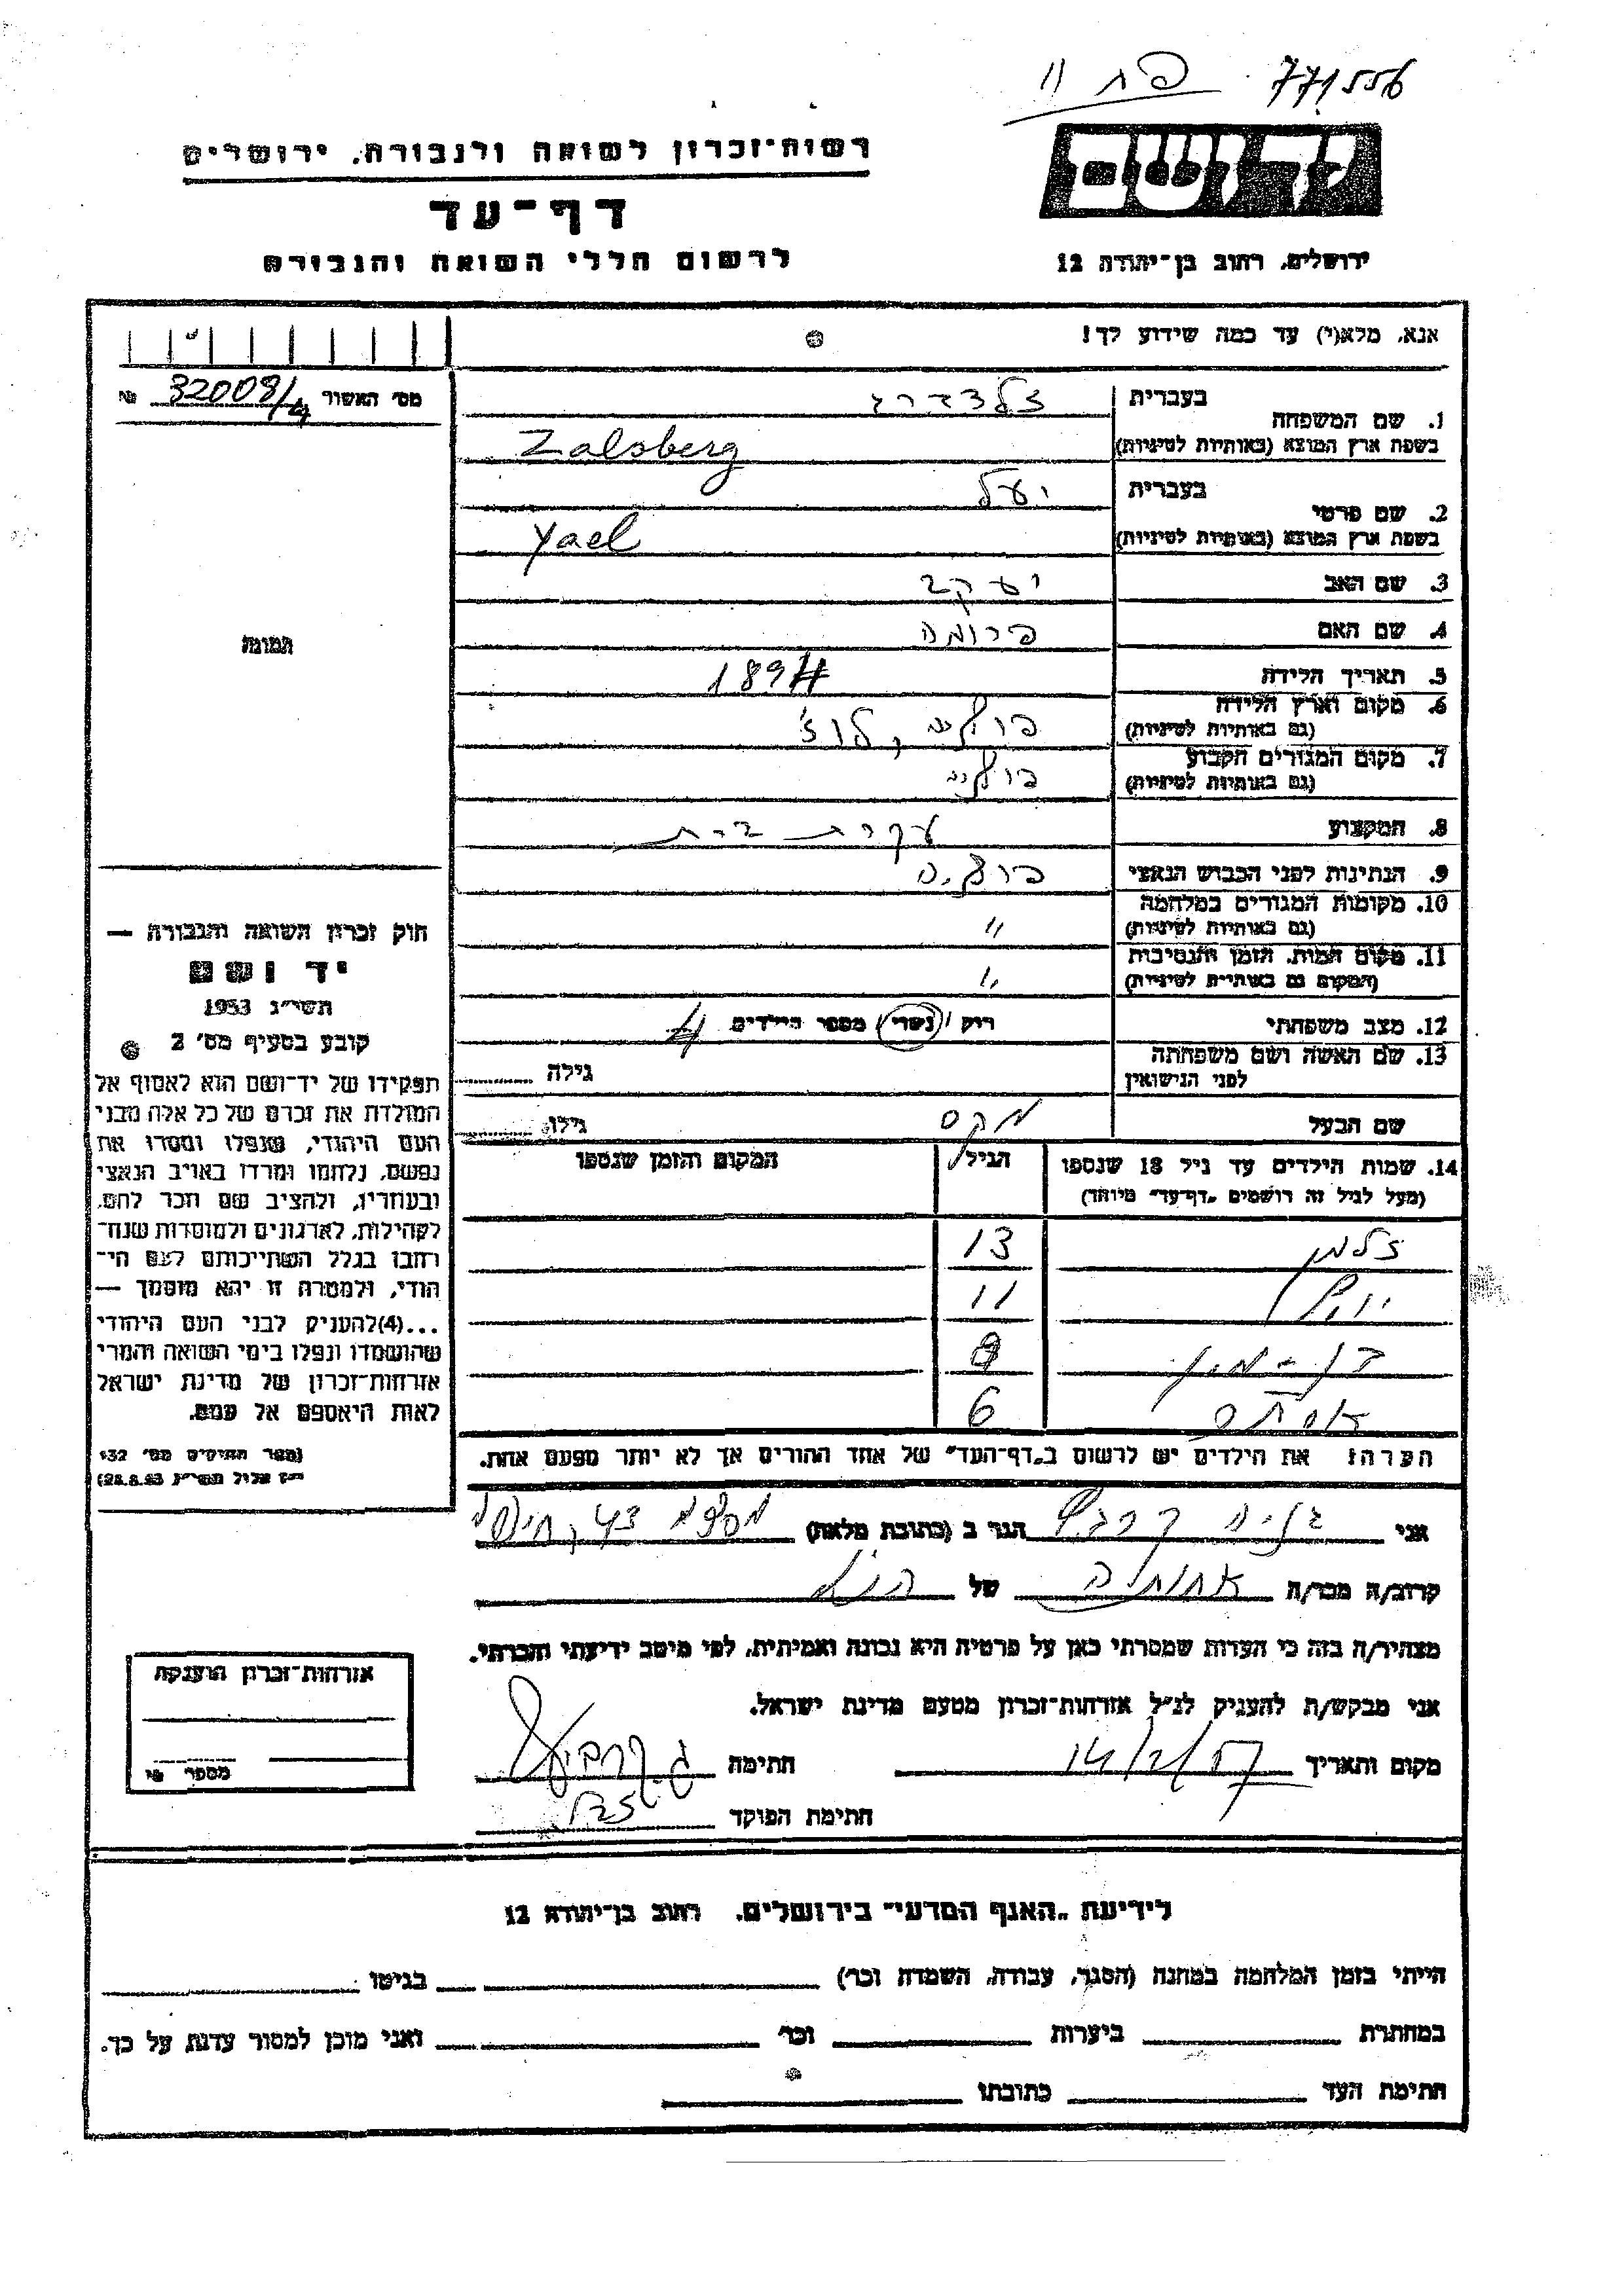 פ ת 11 771556
יד ושם
רשות־זכרון לשואה ולגבורה, ירושלים
דף־עד
לרשום חללי השואה והגבורה
ירושלים, רחוב בן־יהודה 12
אנא, מלא(י) עד כמה שידוע לך!
מס׳ האשור 32008/4 №
1. שם המשפחה
בעברית זלצברג
בשפת ארץ המוצא (באותיות לטיניות) Zalsberg
2. שם פרטי
בעברית יעל
בשפת ארץ המוצא (באותיות לטיניות) Yael
3. שם האב יעקב
4. שם האם פרומה
תמונה
5. תאריך הלידה 1894
6. מקום וארץ הלידה פולין, לודז׳
(גם באותיות לטיניות)
7. מקום המגורים הקבוע פולין
(גם באותיות לטיניות)
8. המקצוע עקרת בית
9. הנתינות לפני הכבוש הנאצי
10. מקומות המגורים במלחמה "
(גם באותיות לטיניות)
11. מקום המות, הזמן והנסיבות "
(המקום גם באותיות לטיניות)
12. מצב משפחתי רוק/(נשוי) מספר הילדים 4
13. שם האשה ושם משפחתה גילה
לפני הנישואין
שם הבעל מקס גילו
14. שמות הילדים עד גיל 18 שנספו הגיל המקום והזמן שנספו
(מעל לגיל זה רושמים „דף־עד״ מיוחד)
זלמן 13
11
9
אסתר 6
הערה: את הילדים יש לרשום ב„דף־העד״ של אחד ההורים אך לא יותר מפעם אחת.
חוק זכרון השואה והגבורה —
יד ושם
תשי״ג 1953
קובע בסעיף מס׳ 2
תפקידו של יד־ושם הוא לאסוף אל
המולדת את זכרם של כל אלה מבני
העם היהודי, שנפלו ומסרו את
נפשם, נלחמו ומרדו באויב הנאצי
ובעוזריו, ולהציב שם וזכר להם,
לקהילות, לארגונים ולמוסדות שנח־
רבו בגלל השתייכותם לעם הי־
הודי, ולמטרה זו יהא מוסמך —
...(4)להעניק לבני העם היהודי
שהושמדו ונפלו בימי השואה והמרי
אזרחות־זכרון של מדינת ישראל
לאות היאספם אל עמם.
(ספר החוקים מס׳ 132
י״ז אלול תשי״ג 28.8.53)
אני הגר ב (כתובת מלאה) 43, חיפה
קרוב/ה מכר/ה של
מצהיר/ה בזה כי העדות שמסרתי כאן על פרטיה היא נכונה ואמיתית, לפי מיטב ידיעתי והכרתי.
אני מבקש/ת להעניק לנ״ל אזרחות־זכרון מטעם מדינת ישראל.
מקום ותאריך 14/2/57 חתימה
חתימת הפוקד
אזרחות־זכרון הוענקה
מספר
לידיעת „האגף המדעי״ בירושלים, רחוב בן־יהודה 12
הייתי בזמן המלחמה במחנה (הסגר, עבודה, השמדה וכו׳) בגיטו
במחתרת ביערות וכו׳ ואני מוכן למסור עדות על כך.
חתימת העד כתובתו